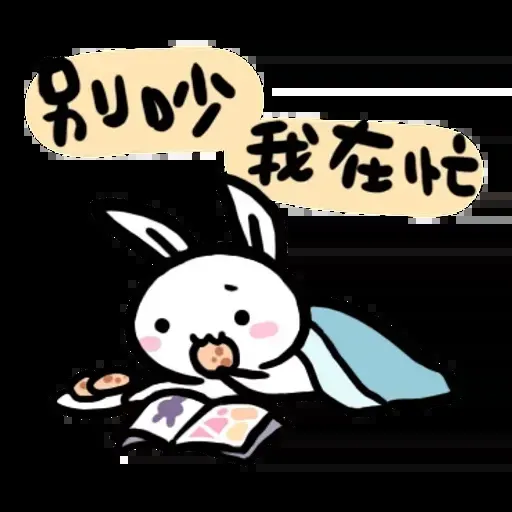 别吵
我在忙